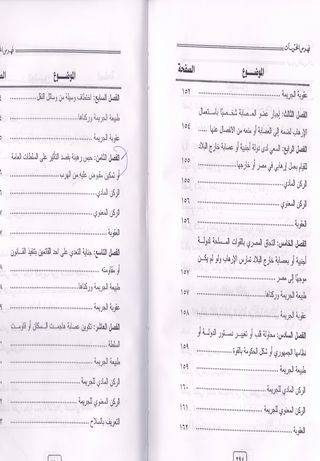 فهرس المحتويات
الموضـــوع
الصفحة
عقوبة الجريمة ١٥٢
الفصل الثالث: إجبار عضو العصابة شخصيًا باستعمال
الإرهاب لضمه إلى العصابة أو منعه من الانفصال عنها ١٥٤
الفصل الرابع: السعى لدى دولة أجنبية أو عصابة خارج البلاد
للقيام بعمل إرهابي في مصر أو خارجها ١٥٥
الركن المادي ١٥٥
الركن المعنوي ١٥٦
العقوبة ١٥٦
الفصل الخامس: التحاق المصري بالقوات المسلحة لدولة
أجنبية أو بعصابة خارج البلاد تمارس الإرهاب ولو لم يكن
موجهًا إلى مصر ١٥٧
طبيعة الجريمة وركناها ١٥٧
عقوبة الجريمة ١٥٨
الفصل السادس: محاولة قلب أو تغيير دستور الدولة أو
نظامها الجمهوري أو شكل الحكومة بالقوة ١٥٩
طبيعة الجريمة ١٥٩
الركن المادي للجريمة ١٦٠
الركن المعنوي للجريمة ١٦١
العقوبة ١٦٢
فهرس المحتويات
الموضـــوع
الفصل السابع: اختطاف وسيلة من وسائل النقل
طبيعة الجريمة وركناها
عقوبة الجريمة
الفصل الثامن: حبس رهينة بقصد التأثير على السلطات العامة
أو تمكين مقبوض عليه من الهرب
الركن المادي
الركن المعنوي
العقوبة
الفصل التاسع: جناية التعدي على أحد القائمين بتنفيذ القانون
أو مقاومته
طبيعة الجريمة وركناها
عقوبة الجريمة
الفصل العاشر: تكوين عصابة هاجمت السكان أو قاومت
السلطة
طبيعة الجريمة
الركن المادي للجريمة
الركن المعنوي للجريمة
التعريف بالسلاح